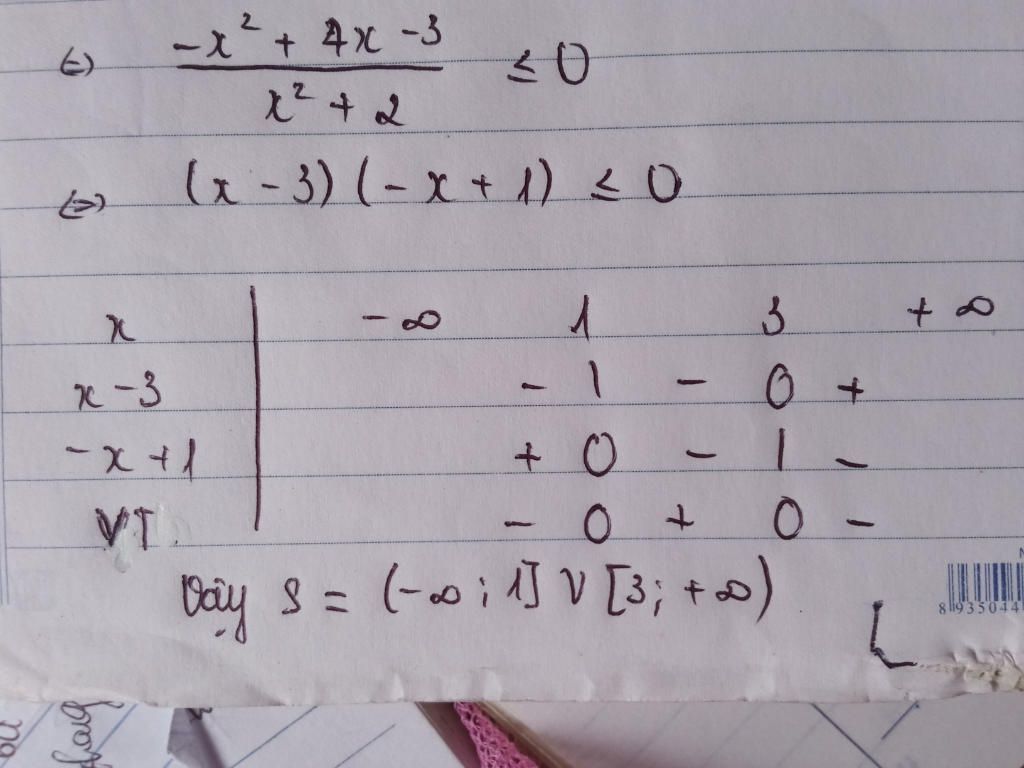 (=) -x² + 4x - 3 / x² + 2 ≤ 0
<=> (x - 3)(-x + 1) ≤ 0
x | -∞ 1 3 +∞
x - 3 | - | - 0 +
-x + 1 | + 0 - | -
VT | - 0 + 0 -
Vậy S = (-∞; 1] V [3; +∞)
8 935044